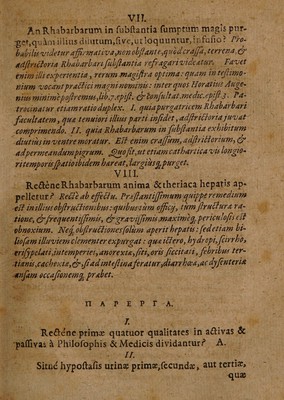 VII.
An Rhabarbarum in substantia sumptum magis pur-
get, quàm illius dilutum, sive, ut loquuntur, Infusio? Pro-
babilis videtur affirmativa, non obstante, quòd crassa, terrena, &
adstrictoria Rhabarbari substantia refragari videatur. Favet
enim illi experientia, rerum magistra optima: quam in testimo-
nium vocant practici magni nominis: inter quos Horatius Auge-
nius minimè postremus, lib. 7. epist. & consultat. medic. epist. 3. Pa-
trocinatur etiam ratio duplex. I. quia purgatricem Rhabarbari
facultatem, quæ tenuiori illius parti insidet, adstrictoria juvat
comprimendo. II. quia Rhabarbarum in substantia exhibitum
diutius in ventre moratur. Est enim crassum, adstrictorium, &
ad permeandum pigrum. Quo fit, ut etiam cathartica vis longio-
ri temporis spatio bidem hareat, largiusq́ purget.
VIII.
Rectène Rhabarbarum anima & theriaca hepatis ap-
pelletur? Rectè ab effectu. Præstantissimum quippe remedium
est in illius obstructionibus: quibus cùm officij, tum structuræ ra-
tione, & frequentissimis, & gravissimis maximeq́, periculosis est
obnoxium. Neq́ obstructiones solùm aperit hepatis: sed etiam bi-
liosam illuviem clementer expurgat: quæ ictero, hydropi, scirrho,
erisypelati, intemperiei, anorexiæ, siti, oris siccitati, febribus ter-
tianis, cachexiæ, &, si ad intestina feratur, diarrhœæ, ac dysenteriæ
ansam occasionemq́, præbet.
ΠΑΡΕΡΓΑ.
I.
Rectène primæ quatuor qualitates in activas &
passivas à Philosophis & Medicis dividantur? A.
II.
Sitnè hypostasis urinæ primæ, secundæ, aut tertiæ,
quæ